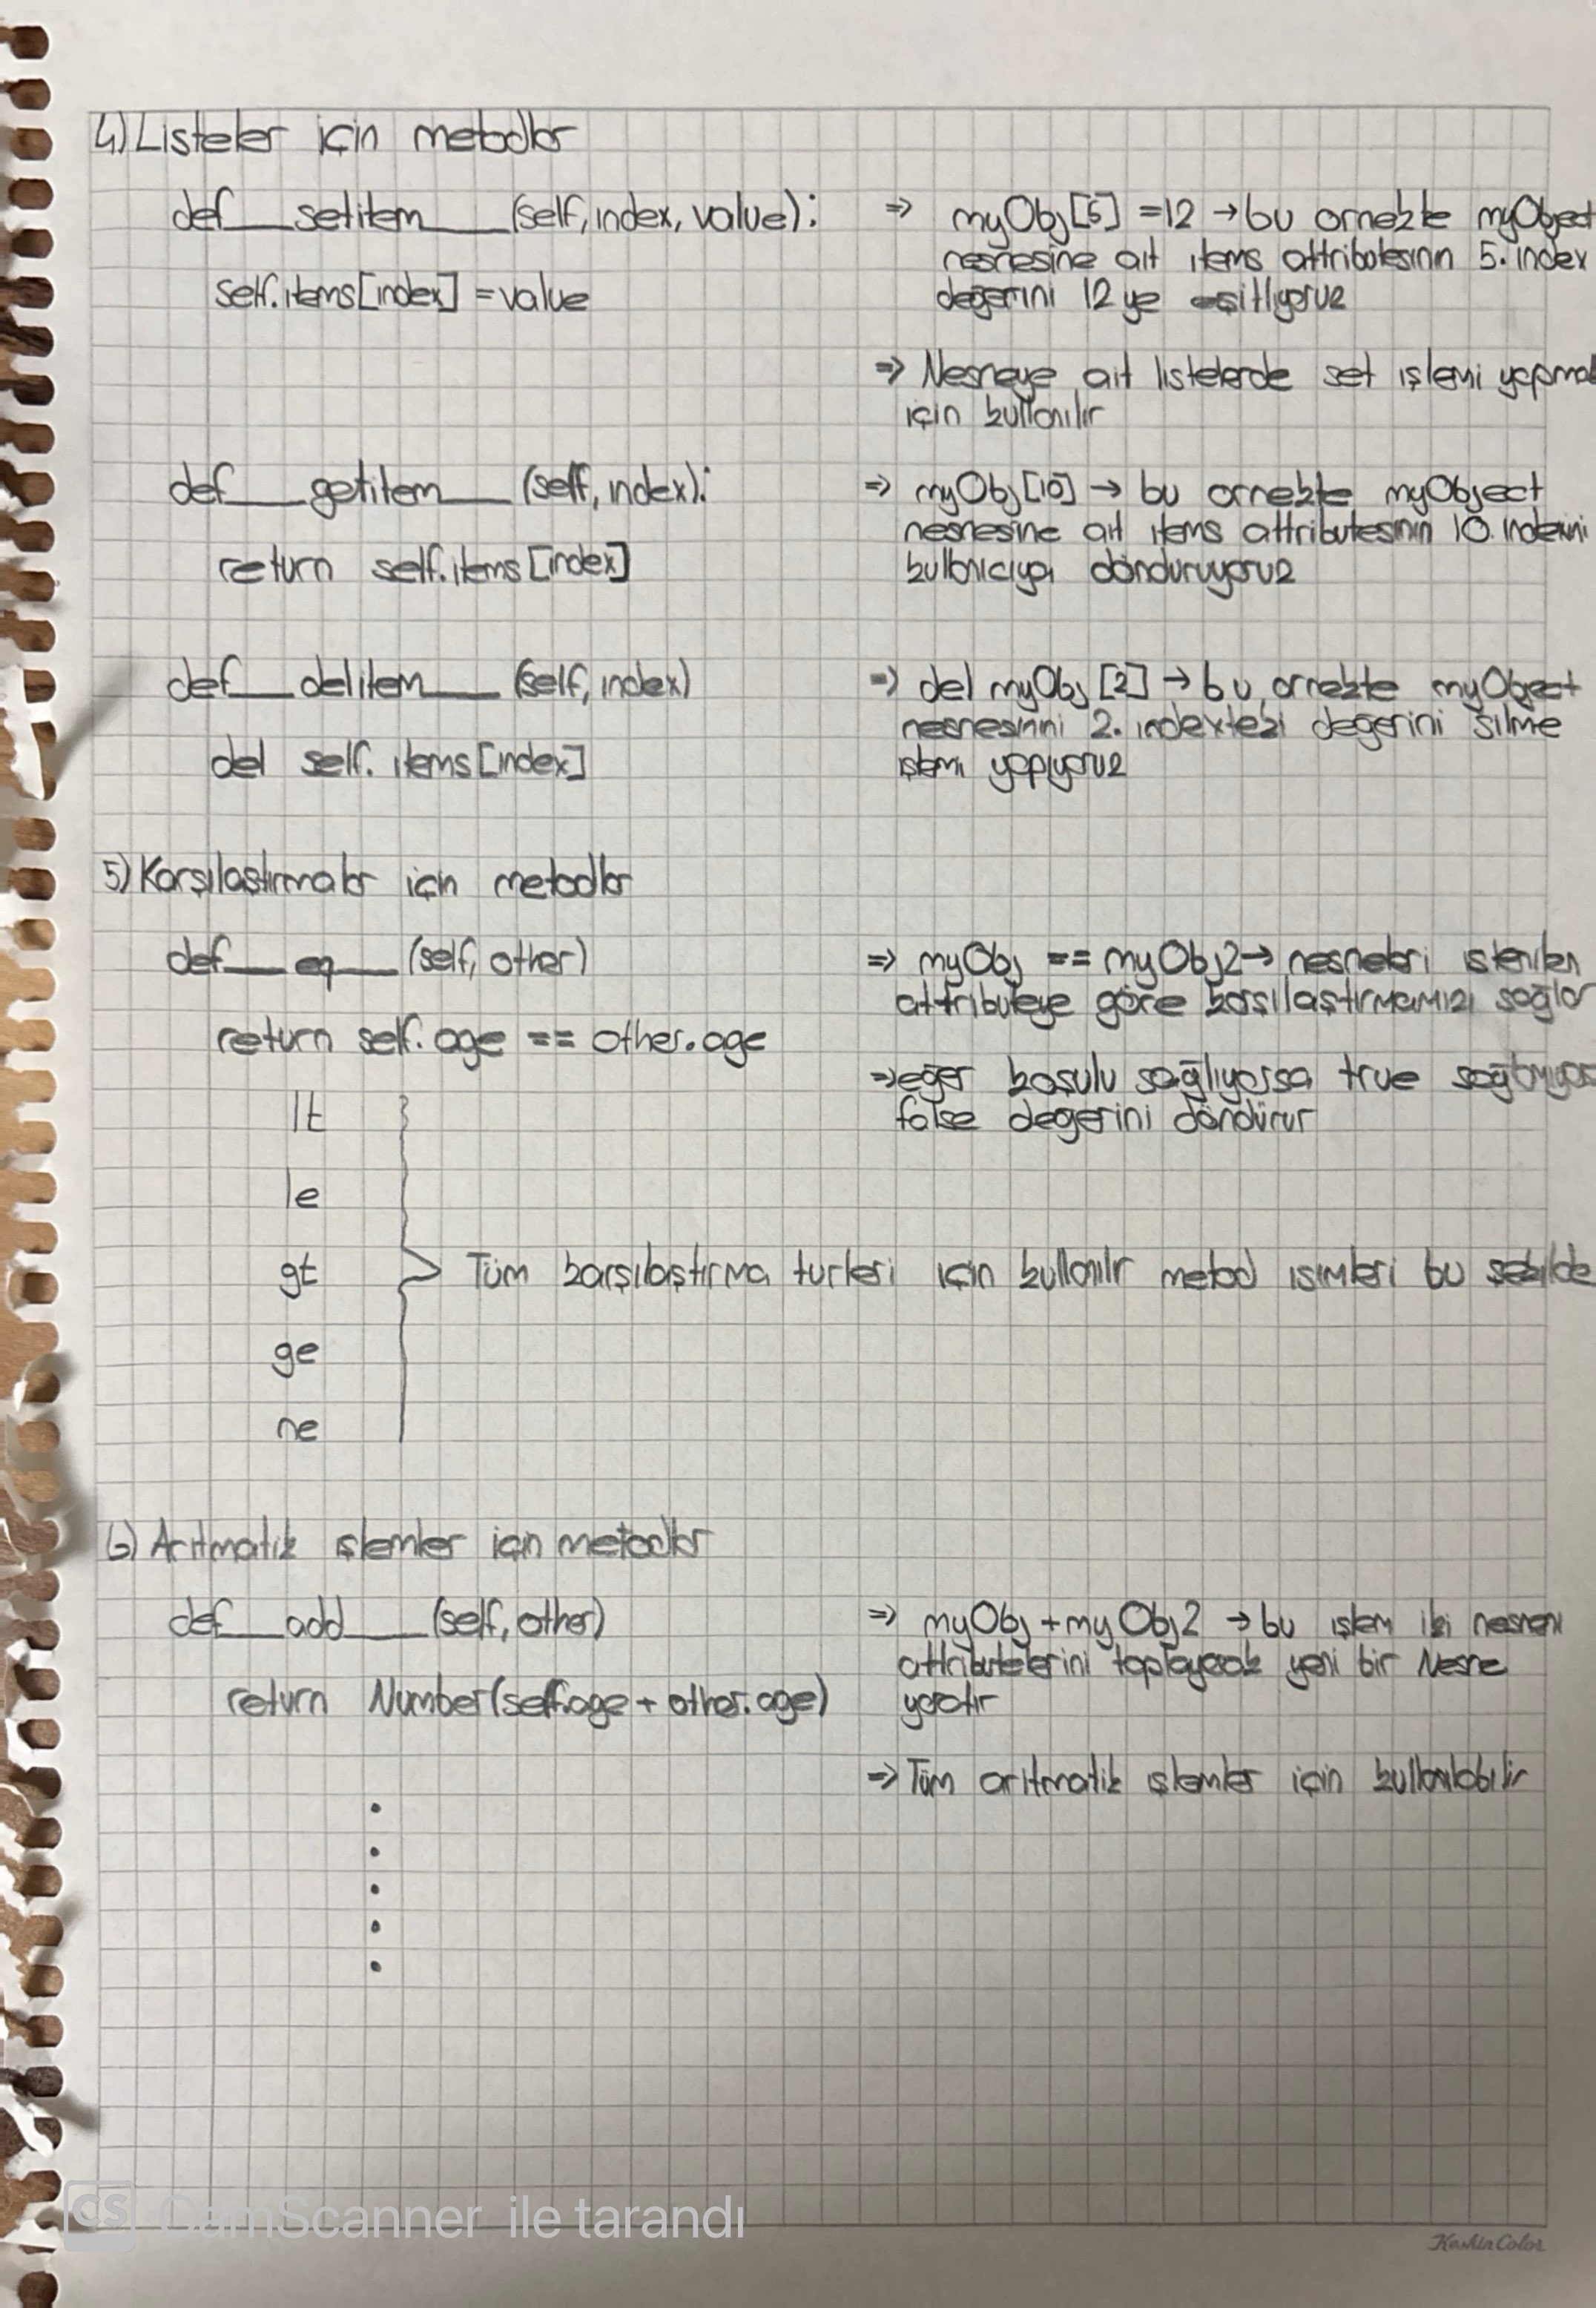 4) Listeler için metodlar
def __ setitem __ (self, index, value):
self.items[index] = value
⇒ myObj[5] = 12 → bu örnekte myObject
nesnesine ait items attributesinin 5. index
değerini 12 ye eşitliyoruz
⇒ Nesneye ait listelerde set işlemi yapmak
için kullanılır
def __ getitem __ (self, index):
return self.items[index]
⇒ myObj[10] → bu örnekte myObject
nesnesine ait items attributesinin 10. indexini
kullanıcıya döndürüyoruz
def __ delitem __ (self, index)
del self.items[index]
⇒ del myObj[2] → bu örnekte myObject
nesnesinini 2. indexteki değerini silme
işlemi yapıyoruz
5) Karşılaştırmalar için metodlar
def __ eq __ (self, other)
return self.age == other.age
⇒ myObj == myObj2 → nesneleri istenilen
attributeye göre karşılaştırmamızı sağlar
⇒ eğer koşulu sağlıyorsa true
false değerini döndürür
lt
le
gt
ge
ne
Tüm karşılaştırma türleri için kullanılır metod isimleri bu şekilde
6) Aritmatik işlemler için metodlar
def __ add __ (self, other)
return Number(self.age + other.age)
⇒ myObj + myObj2 → bu işlem iki nesneni
attributelerini toplayacak yeni bir Nesne
yaratır
⇒ Tüm aritmatik işlemler için kullanılabilir
CS CamScanner ile tarandı
KeskinColor